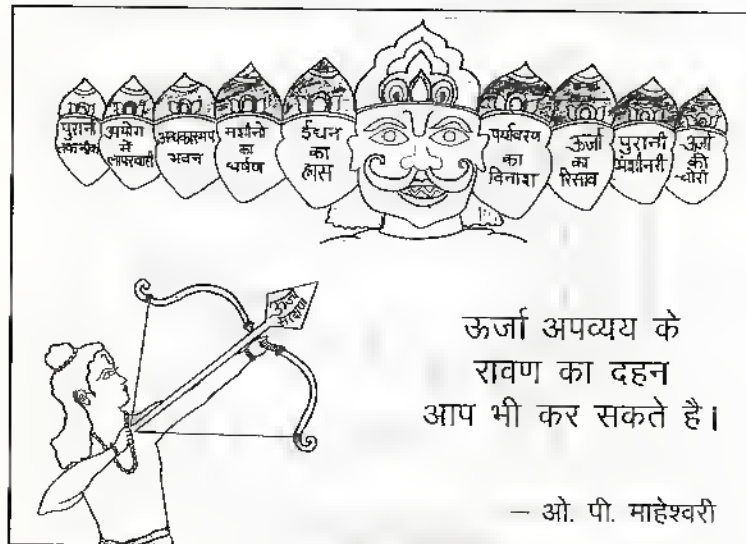 पुरानी
तकनीक
उपयोग
में
लापरवाही
भवन
मशीनों
का
घर्षण
ईंधन
का
ह्रास
पर्यावरण
का
विनाश
ऊर्जा
का
रिसाव
पुरानी
मशीनरी
ऊर्जा
की
चोरी
ऊर्जा
संरक्षण
ऊर्जा अपव्यय के
रावण का दहन
आप भी कर सकते है।
– ओ. पी. माहेश्वरी